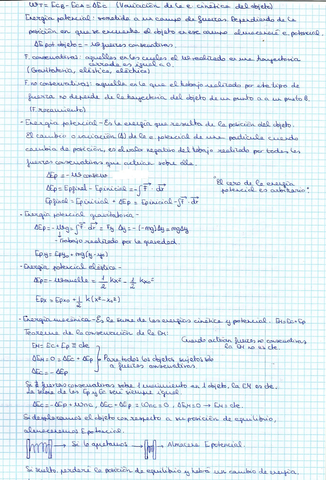 WT = ECB - ECA = ΔEC (Variación de la e. cinética del objeto)
Energía potencial: sometida a un campo de fuerzas. Dependiendo de la
posición en que se encuentre el objeto en ese campo almacena e. potencial.
ΔEpot objeto = - W fuerzas conservativas.
F. conservativas: aquellas en las cuales el W realizado en una trayectoria
cerrada es igual a 0.
(Gravitatoria, elástica, eléctrica)
F. no conservativas: aquella en la que el trabajo realizado por este tipo de
fuerza no depende de la trayectoria del objeto de un punto a a un punto b.
(F. rozamiento)
- Energía potencial - Es la energía que resulta de la posición del objeto.
El cambio o variación (Δ) de la e. potencial de una partícula cuando
cambia de posición, es el valor negativo del trabajo realizado por todas las
fuerzas conservativas que actúan sobre ella.
ΔEp = - W conserv
ΔEp = Ep final - Ep inicial = - ∫ F dr
"El cero de la energía
potencial es arbitrario"
Ep final = Ep inicial + ΔEp = Ep inicial - ∫ F dr
- Energía potencial gravitatoria -
ΔEp = - Wg = ∫ F dr = Fg Δy = - (-mg) Δy = mgΔy
Trabajo realizado por la gravedad.
Epy = Epy0 + mg(y - y0)
- Energía potencial elástica -
ΔEp = - W muelle = 1/2 Kx² - 1/2 Kx0²
Epx = Epx0 + 1/2 K (x² - x0²)
- Energía mecánica - Es la suma de las energías cinética y potencial. EM = Ec + Ep
Teorema de la conservación de la EM:
Cuando actúan fuerzas no conservativas
la EM no es cte.
EM = Ec + Ep = cte
ΔEM = 0 = ΔEc + ΔEp
Para todos los objetos sujetos sólo
a fuerzas conservativas
ΔEc = - ΔEp
Si fuerzas conservativas sobre 1 movimiento en 1 objeto, la EM es cte.
La suma de las Ep y Ec será siempre igual
ΔEc = - ΔEp + Wnc, ΔEc + ΔEp = Wnc = 0, ΔEM = 0 → EM = cte.
Si desplazamos el objeto con respecto a su posición de equilibrio,
almacenamos E potencial.
→ Si lo apretamos → Almacena E potencial.
Si suelto, perderá la posición de equilibrio y habrá un cambio de energía.